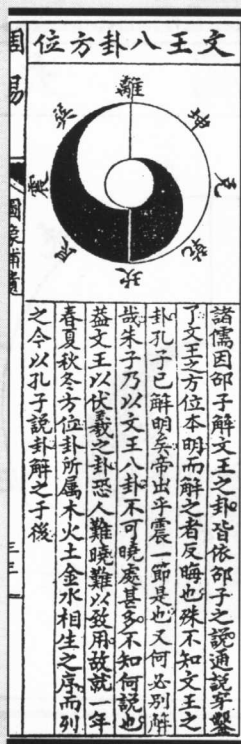 文王八卦方位
離
坤
兌
乾
坎
艮
震
巽
諸儒因邵子解文王之卦皆依邵子之說通說穿鑿
了文王之方位本明而解之者反晦也殊不知文王之
卦孔子已解明矣帝出乎震一節是也又何必別解
哉朱子乃以文王八卦不可曉處甚多不知何說也
蓋文王以伏羲之卦恐人難曉難以致用故就一年
春夏秋冬方位卦所属木火土金水相生之序而列
之今以孔子說卦解之于後
周易